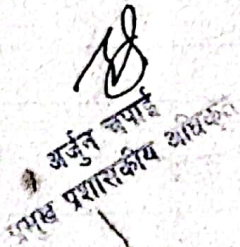 अर्जुन चपाई
प्रमुख प्रशासकीय अधिकृत